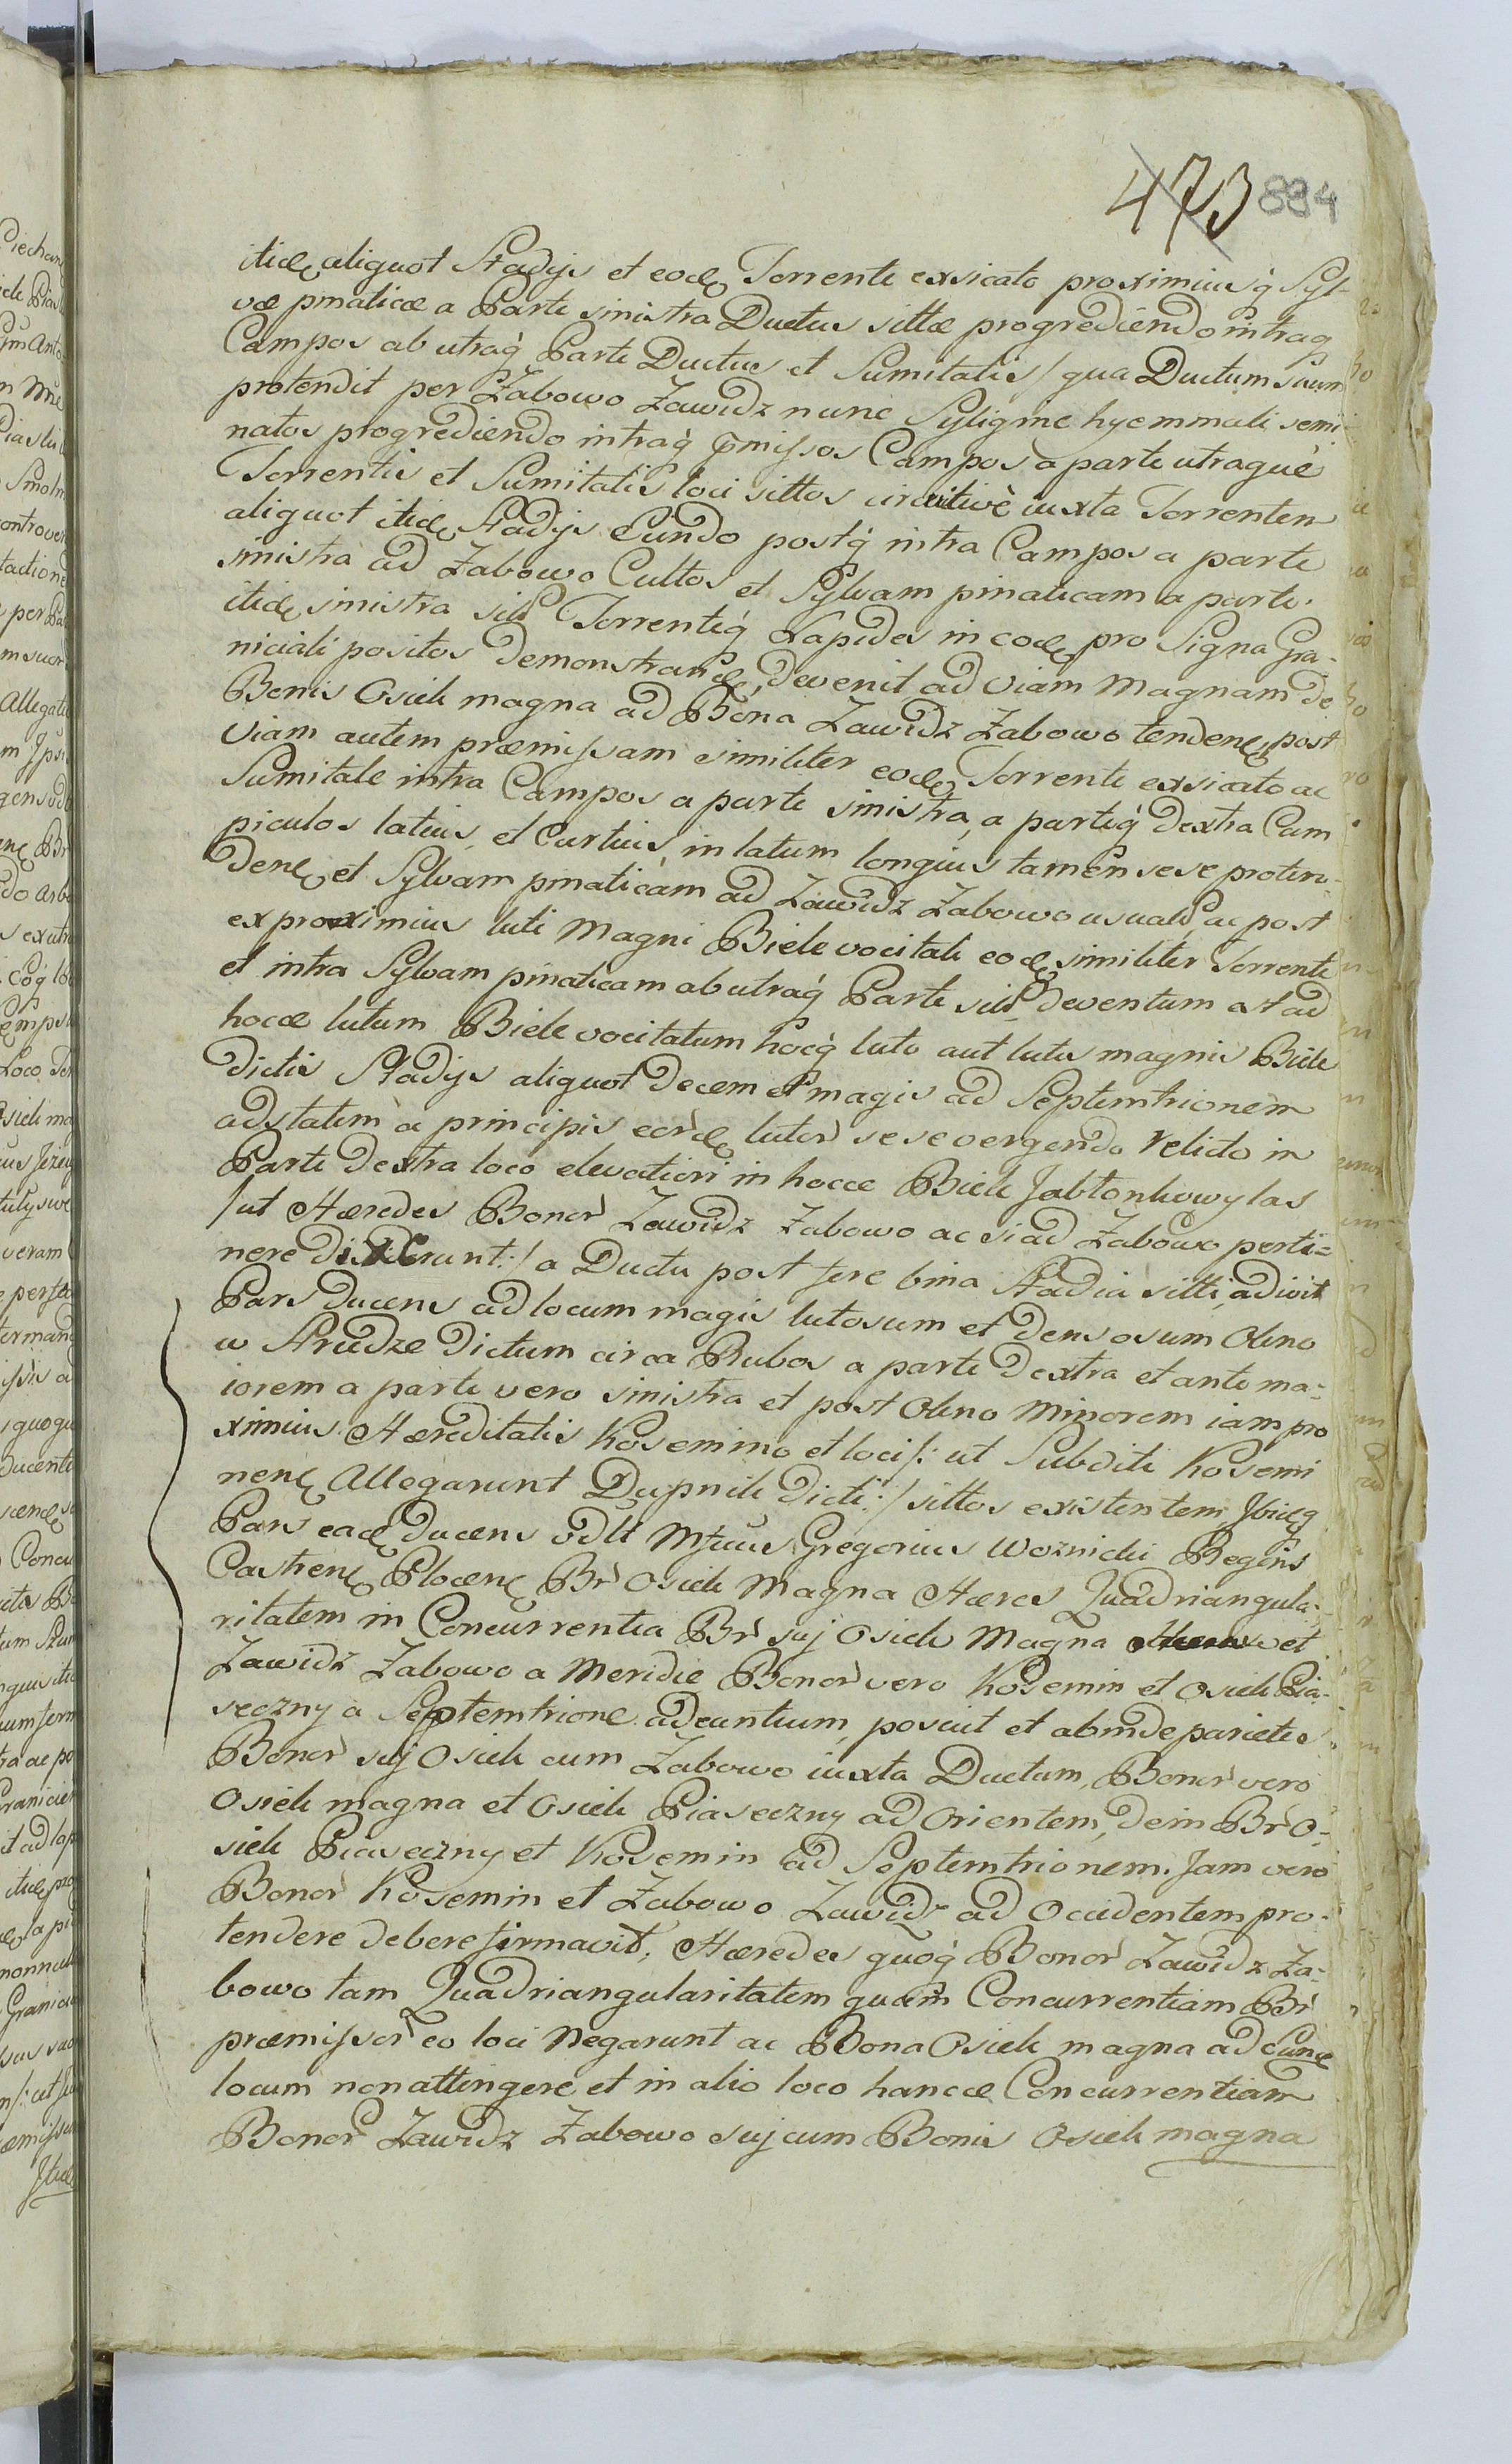 473 884
itidẽ aliquot Stadijs et eodẽ Torrente exsicato proximius q́ Syl-
væ pinaticæ a Parte sinistra Ductus sittæ progrediendo intraq́
Campos ab utraq́ Parte Ductus et Sumitatis / qua Ductum suum
protendit per Żabowo Zawidz nunc Syligine hyemmali semi-
natos progrediendo intraq́ p̃missos Campos à parte utraquè
Torrentis et Sumitatis loci sittos circuitivè iuxta Torrentem
aliquot itidẽ Stadijs Eundo postq́ intra Campos a parte
sinistra ad Żabowo Cultos et Sylvam pinaticam a parte
itidẽ sinistra sitt Torrentiq́ Lapides in eodẽ pro Signa Gra-
niciali positos demonstrandẽ, devenit ad Viam Magnam de
Bonis Osiek magna ad Bona Zawidz Żabowo tendenẽ, post
Viam autem præmissam similiter eodẽ Torrente exsicato ac
Sumitate intra Campos a parte sinistra, a parteq́ dextra Cam
piculos latius, et Curtius, in latum longius tamen sese proten-
denẽ, et Sylvam pinaticam ad Zawidz Żabowo usualẽ, ac post
ex proximius luti Magni Biele vocitati eodẽ similiter Torrente
et intra Sylvam pinaticam ab utraq́ Parte sitt deventum est ad
hocce lutum Biele vocitatum hocq́ luto aut lutis magnis Biele
dictis Stadijs aliquot decem et magis ad Septemtrionem
adstatem a principis eordẽ lutor̀ sese vergendo relicto in
Parte dextra loco elevatiori in hocce Biele Jabłonkowy las
/ut Hæredes Bonor̀ Zawidz Żabowo ac si ad Żabowo perti-
nere dixerunt:/ a Ductu post fere bina Stadia sitti, adivit
Pars Ducens ad locum magis lutosum et densosum Okno
w Strudze dictum circa Rubos a parte dextra et ante ma-
iorem a parte vero sinistra et post Okno Minorem iam pro
ximius Hæreditatis Kosemino et loci /: ut Subditi Kosemi
nenẽ Allegarunt Dupniki dicti:/ sittos existentem, Ibiq́
Pars eadẽ ducens vdlt Mfcus Gregorius Woznicki Regens
Castrenẽ Plocenẽ Br̀ Osiek Magna Hæres Quadriangula-
ritatem in Concurrentia Br̀ suj Osiek Magna et
Zawidz Żabowo a Meridie Bonor̀ vero Kosemin et Osiek Pia-
seczny a Septemtrione adeuntium, posuit et abinde parietes
Bonor̀ suj Osiek cum Żabowo iuxta Ductum, Bonor̀ vero
Osiek magna et Osiek Piaseczny ad Orientem, dein Br̀ O-
siek Piaseczny et Kosemin ad Septemtrionem. Jam vero
Bonor̀ Kosemin et Żabowo Zawidz ad Occidentem pro-
tendere debere firmavit, Hæredes quoq́ Bonor̀ Zawidz Ża-
bowo tam Quadriangularitatem quam Concurrentiam Br̀
præmissor̀ eo loci Negarunt ac Bona Osiek magna ad Eunde
locum non attingere, et in alio loco hancce Concurrentiam
Bonor̀ Zawidz Żabowo suj cum Bonis Osiek magna